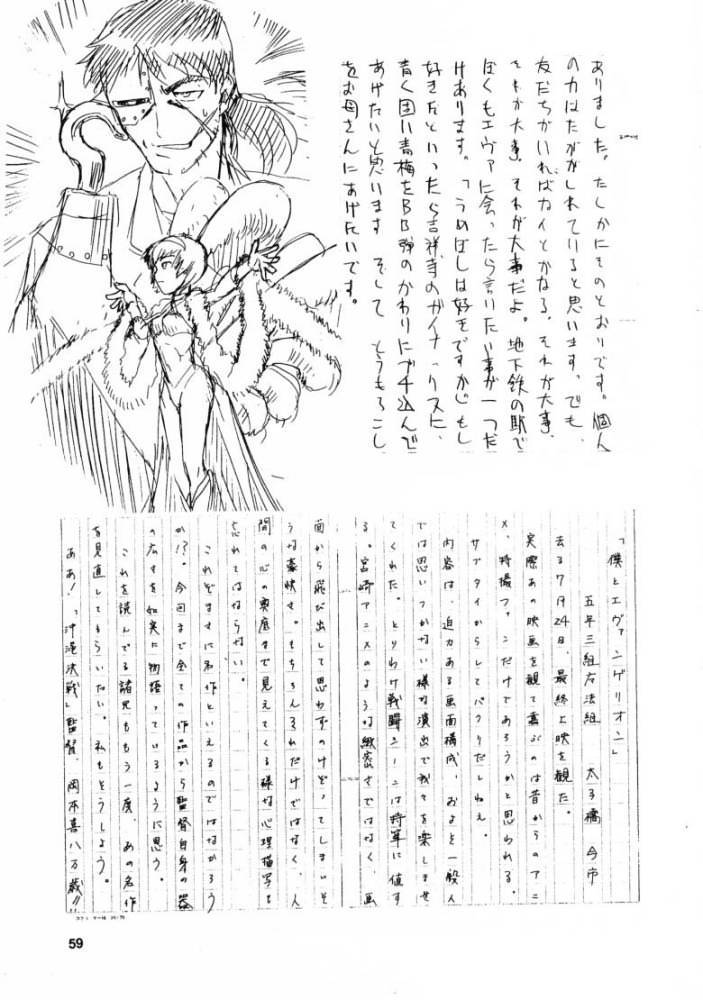 ありました。たしかにそのとおりです。個人
の力はたかがしれていると思います。でも、
友だちがいればナイとかなる。それが大事、
それが大事。それが大事だよ。地下鉄の駅で
ぼくもエヴァに会ったら言いたい事が一つだ
けあります。「うめぼしは好きですか」もし
好きだといったら吉祥寺のガイナックスに、
青く固い青梅をBB弾のかわりにブチ込んで
あげたいと思います そして とうもろこし
をお母さんにあげたいです。
「僕とエヴァンゲリオン」
五年三組 太子橋 今市
去る7月24日、最終上映を観た。
実際あの映画を観て喜ぶのは昔からのアニ
メ、特撮ファンだけであろうかと思われる。
サブタイからしてパクリだしねぇ。
内容は、迫力ある画面構成、およそ一般人
では思いつかない様な演出で我々を楽しませ
てくれた。とりわけ戦闘シーンは特筆に値す
る。宮崎アニメのような緻密さではなく、画
面から飛び出して思わずのけぞってしまいそ
うな豪快さ。もちろんそれだけではなく、人
間の心の奥底まで見えてくる様な心理描写も
忘れてはならない。
これぞまさに名作といえるのではなかろう
か!?。今回まで全ての作品から監督自身の器
の広さを如実に物語っているように思う。
これを読んでる諸兄ももう一度、あの名作
を見直してもらいたい。私もそうしよう。
ああ!「沖縄決戦」監督、岡本喜八万歳!!
59